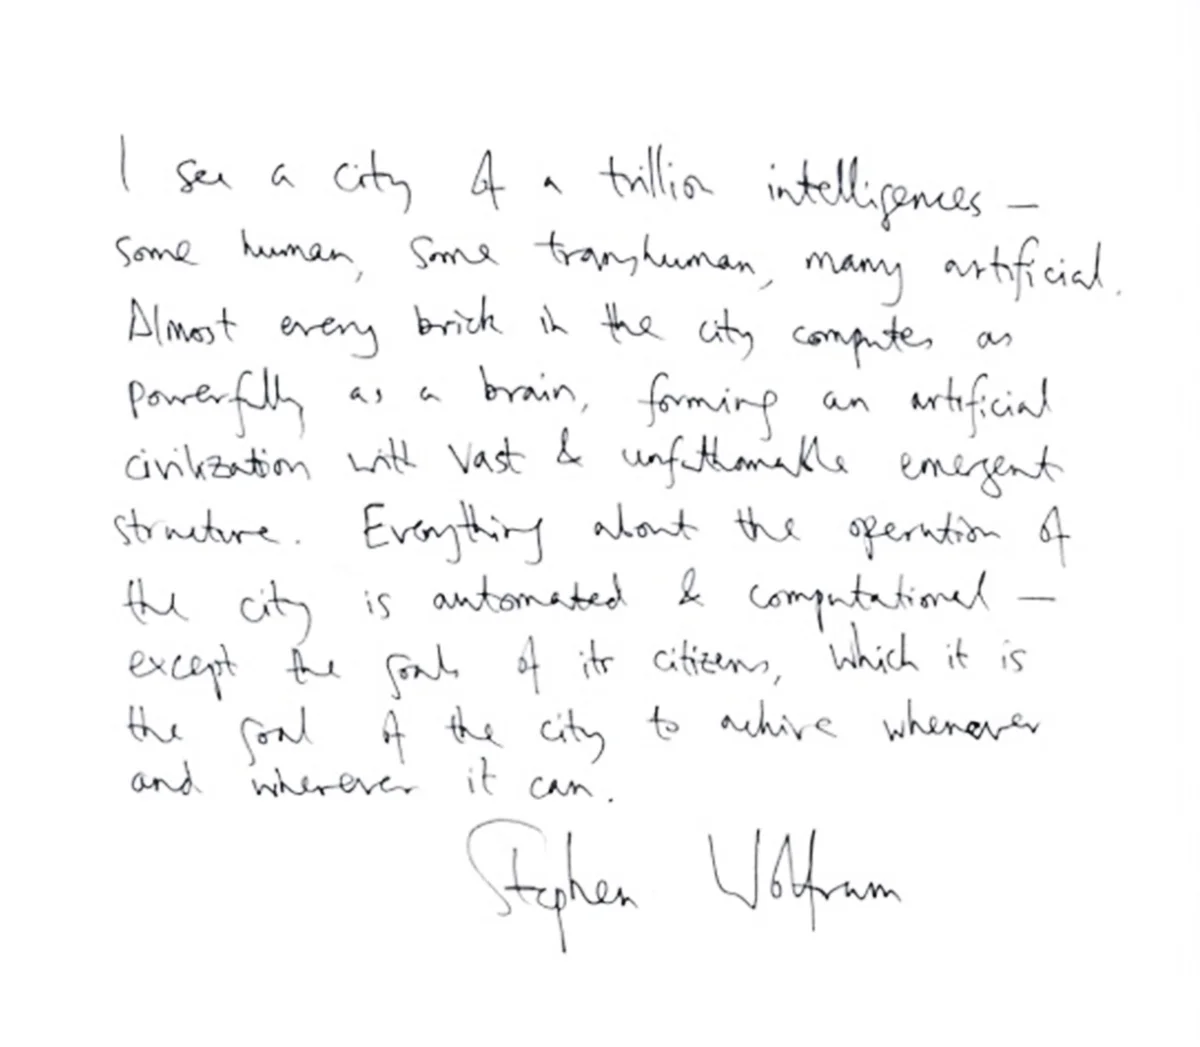 I see a city of a trillion intelligences —
some human, some transhuman, many artificial.
Almost every brick in the city computes as
powerfully as a brain, forming an artificial
civilization with vast & unfathomable emergent
structure. Everything about the operation of
the city is automated & computational —
except the goals of its citizens, which it is
the goal of the city to achive whenever
and wherever it can.
Stephen Wolfram